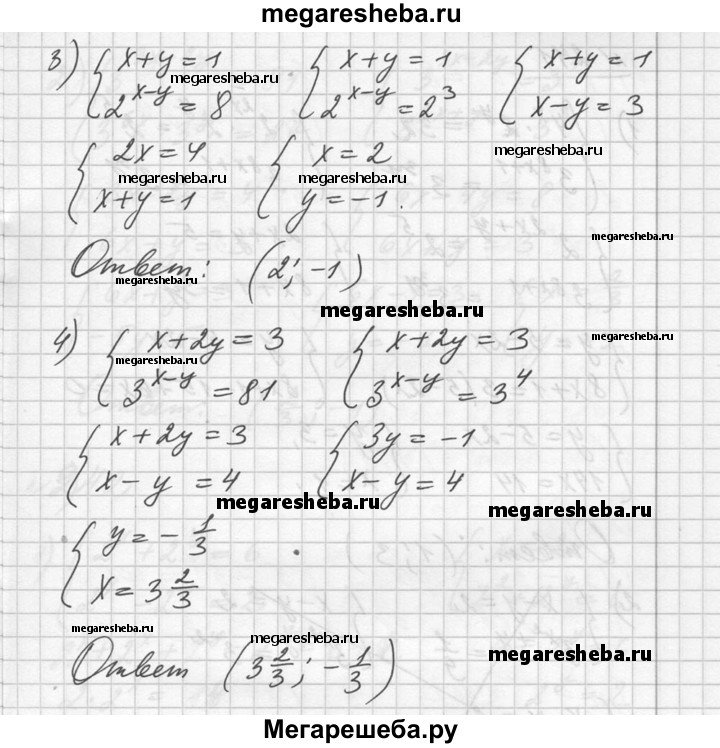 megaresheba.ru
3) { x+y=1 { x+y=1 { x+y=1
megaresheba.ru
2^{x-y} = 8 2^{x-y} = 2^3 x-y=3
{ 2x=4 { x=2
megaresheba.ru megaresheba.ru megaresheba.ru
x+y=1 y=-1.
megaresheba.ru
Ответ: (2; -1)
megaresheba.ru
megaresheba.ru
4) { x+2y=3 { x+2y=3
megaresheba.ru
megaresheba.ru
3^{x-y} = 81 3^{x-y} = 3^4
{ x+2y=3 { 3y=-1
x-y=4 x-y=4
megaresheba.ru megaresheba.ru
{ y=-\frac{1}{3}
x=3\frac{2}{3}
megaresheba.ru
megaresheba.ru
Ответ (3\frac{2}{3}; -\frac{1}{3})
megaresheba.ru
Мегарешеба.ру